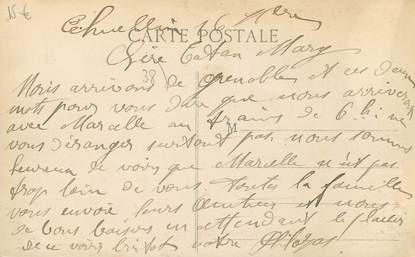 15 €
16
CARTE POSTALE
Chère Mary
38
Nous arrivons de Grenoble et ces deux
mots pour vous dire que nous arriverons
avec Marcelle au trains de 6 h. ne
M
vous déranger surtout pas. nous sommes
heureux de voir que Marcelle n'est pas
trop loin de vous. toutes la famille
vous envoie leurs et nous
de vous baisons en attendant le plaisir
de ce voir notre